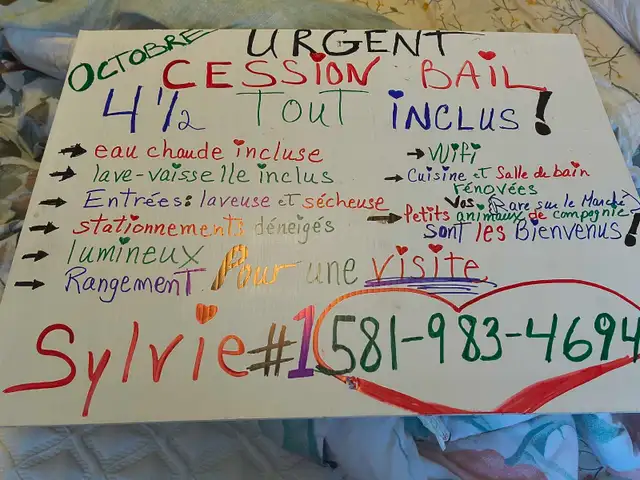 OCTOBRE
URGENT
CESSION BAIL
4 1/2 TOUT INCLUS!
→ eau chaude incluse
→ lave-vaisselle inclus
→ Entrées: laveuse et sécheuse
→ stationnements déneigés
→ lumineux
→ Rangement
→ Wifi
→ Cuisine et Salle de bain
rénovées
Rare sur le Marché
→ Vos Petits animaux de compagnie
sont les Bienvenus!
Pour une visite
Sylvie #1 581-983-4694